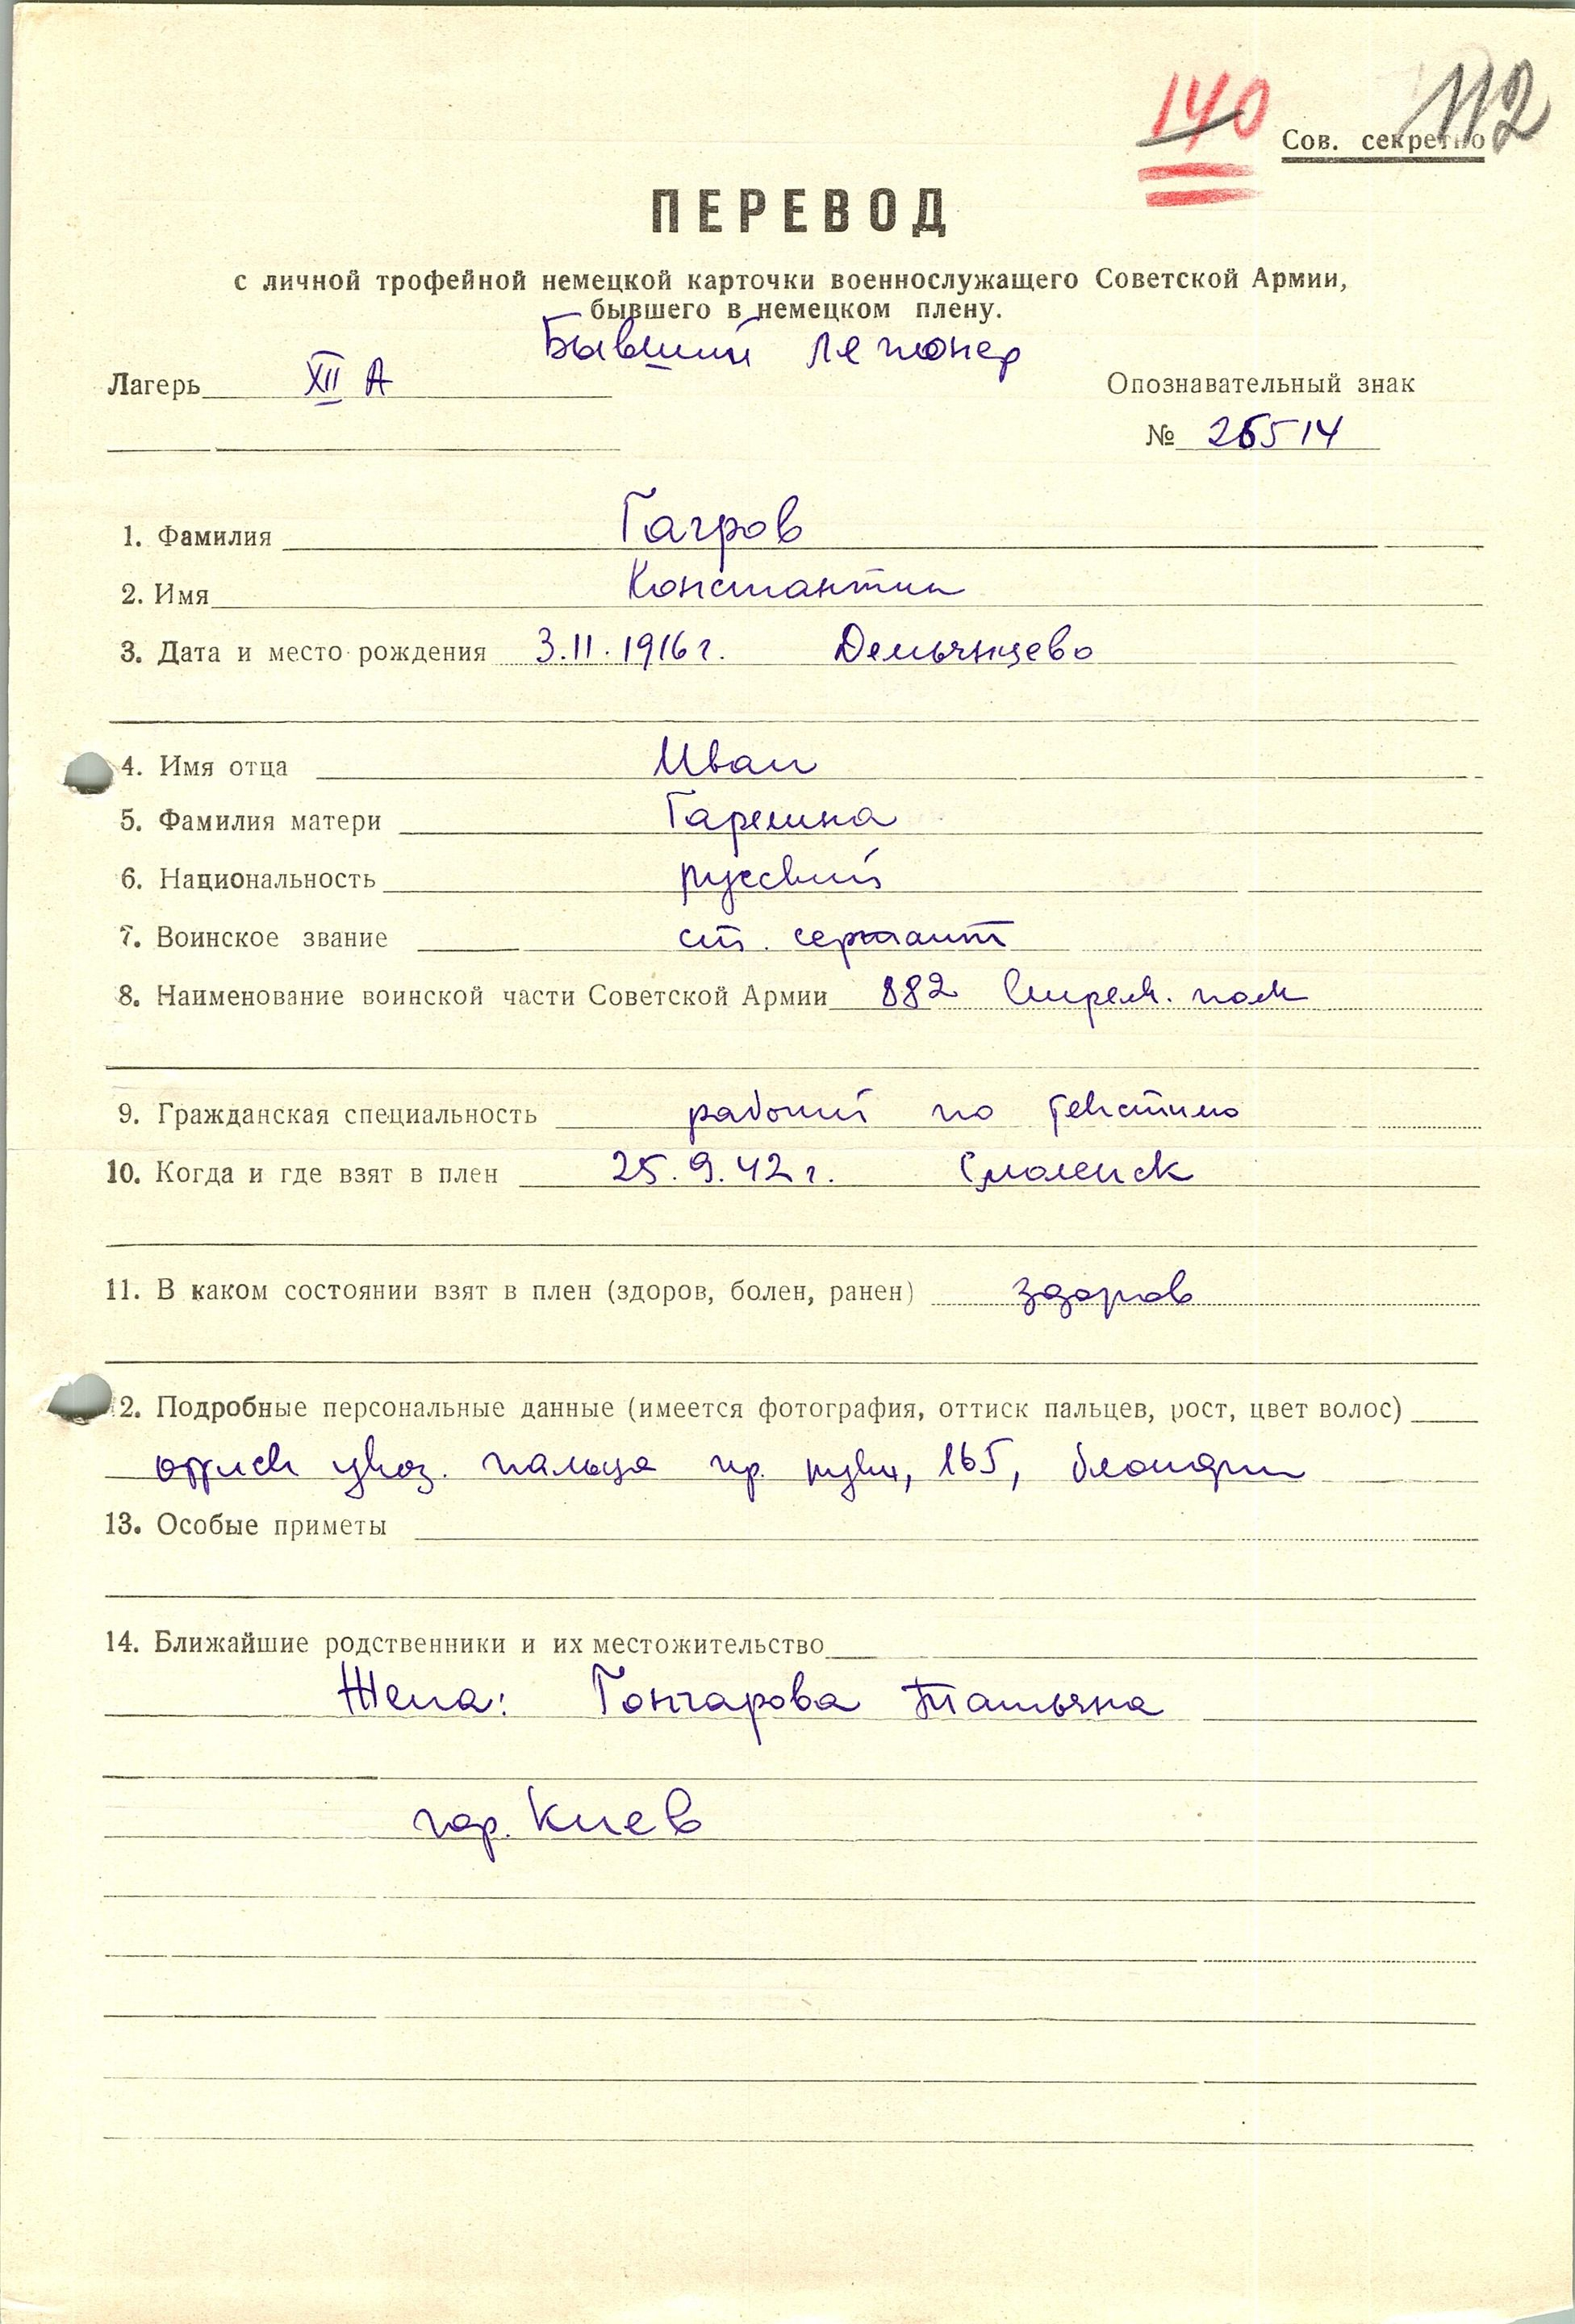 140 112
Сов. секретно
ПЕРЕВОД
с личной трофейной немецкой карточки военнослужащего Советской Армии,
бывшего в немецком плену.
Бывший легионер
Лагерь XII А
Опознавательный знак
№ 26514
1. Фамилия Гагров
2. Имя Константин
3. Дата и место рождения 3.11.1916 г. Демьянцево
4. Имя отца Иван
5. Фамилия матери Гарешна
6. Национальность русский
7. Воинское звание ст. сержант
8. Наименование воинской части Советской Армии 882 Стрелк. полк
9. Гражданская специальность рабочий по текстилю
10. Когда и где взят в плен 25.9.42 г. Смоленск
11. В каком состоянии взят в плен (здоров, болен, ранен) здоров
2. Подробные персональные данные (имеется фотография, оттиск пальцев, рост, цвет волос)
оттиск указ. пальца пр. руки, 165, блондин
13. Особые приметы
14. Ближайшие родственники и их местожительство
Жена: Гончарова Татьяна
гор. Киев